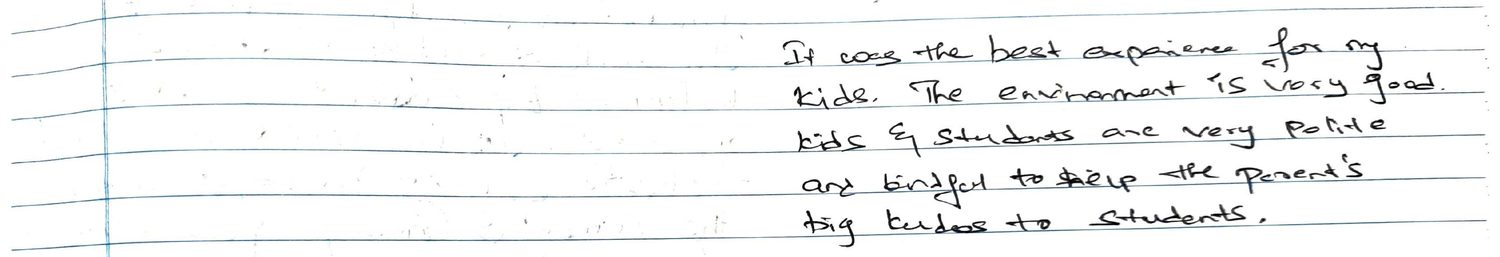 It was the best experience for my
kids. The environment is very good.
kids & students are very polite
and kindful to help the parent's
big kudos to students.